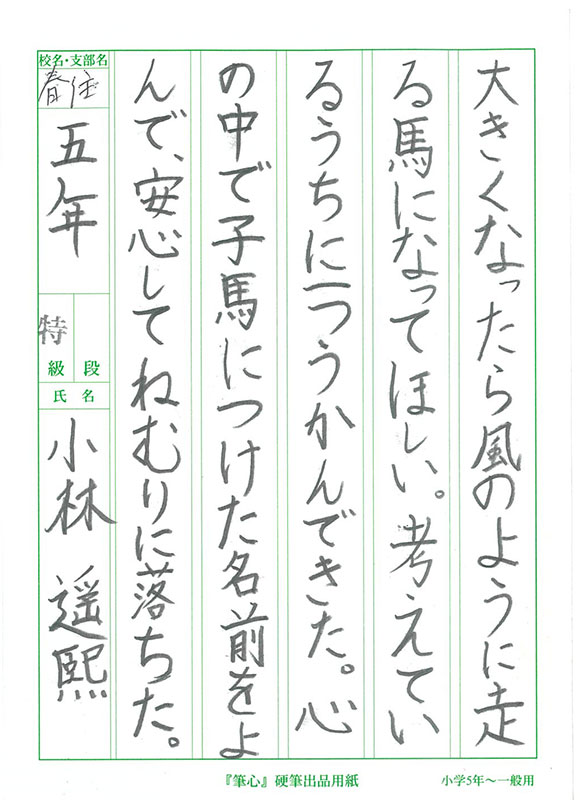 大きくなったら風のように走
る馬になってほしい。考えてい
るうちに一つうかんできた。心
の中で子馬につけた名前をよ
んで、安心してねむりに落ちた。
校名・支部名
春住
五年
特
級 段
氏名
小林 遥熙
『筆心』硬筆出品用紙
小学5年～一般用